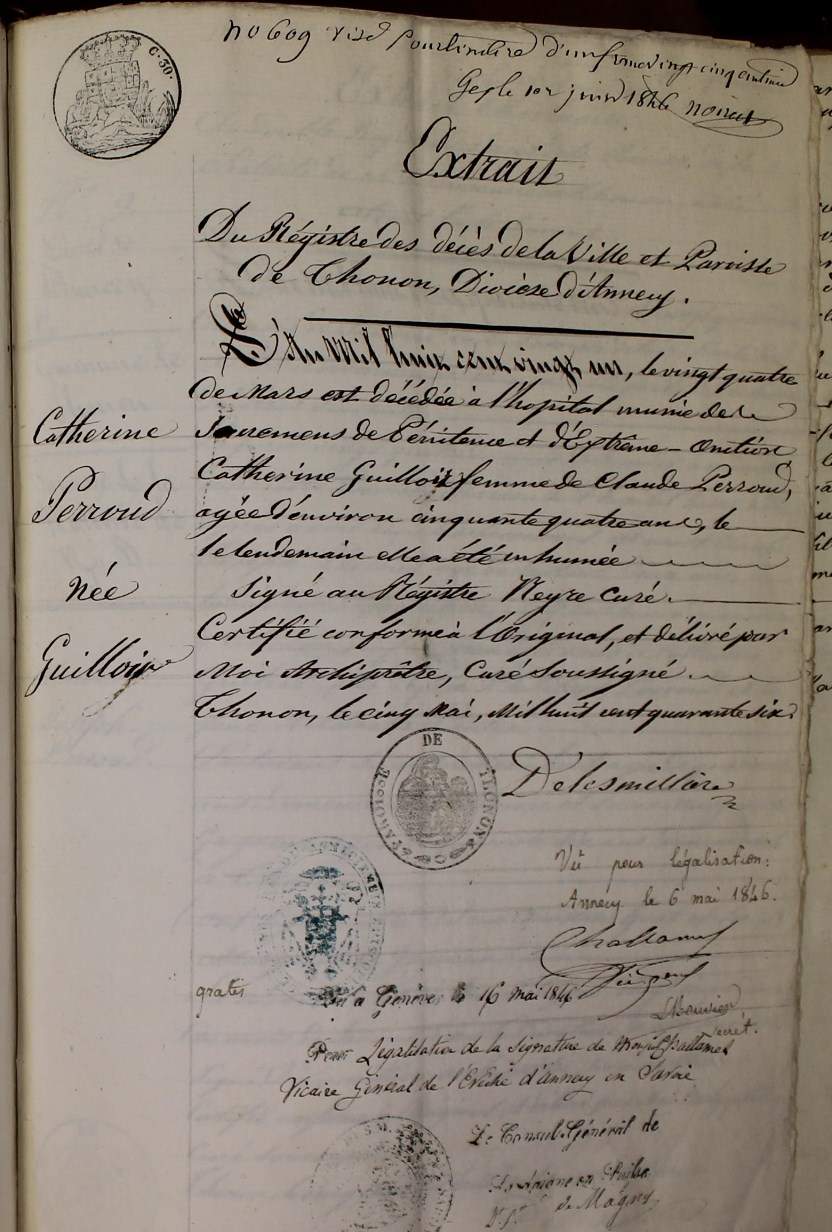 C. 30.
No 609 visé pour timbre d'un franc vingt cinq centimes
Gex le 1er juin 1846 Noirat
Extrait
Du Régistre des décès de la Ville et Paroisse
de Thonon, Diocèse d'Annecy.
L'an Mil huit cent vingt un, le vingt quatre
de Mars est décédée à l'hopital munie des
Sacremens de Pénitence et d'Extrême-Onction
Catherine Guilloir femme de Claude Perroud,
agée d'environ cinquante quatre ans, le
le lendemain elle a été inhumée
signé au Régistre Neyre Curé.
Certifié conforme à l'Original, et délivré par
Moi Archiprêtre, Curé Soussigné
Thonon, le cinq Mai, Mil huit cent quarante six.
Catherine
Perroud
née
Guilloir
Delesmillière
PAROISSE DE THONON
Vû pour légalisation:
Annecy le 6 mai 1846.
Challamel
gratis
Vu à Genève le 16 mai 1846
secrét.
Pour Légalisation de la signature de Monsr Challamel
Vicaire Général de l'Evêché d'Annecy en Savoie
Le Consul Général de
Sardaigne en Suisse
de Magny